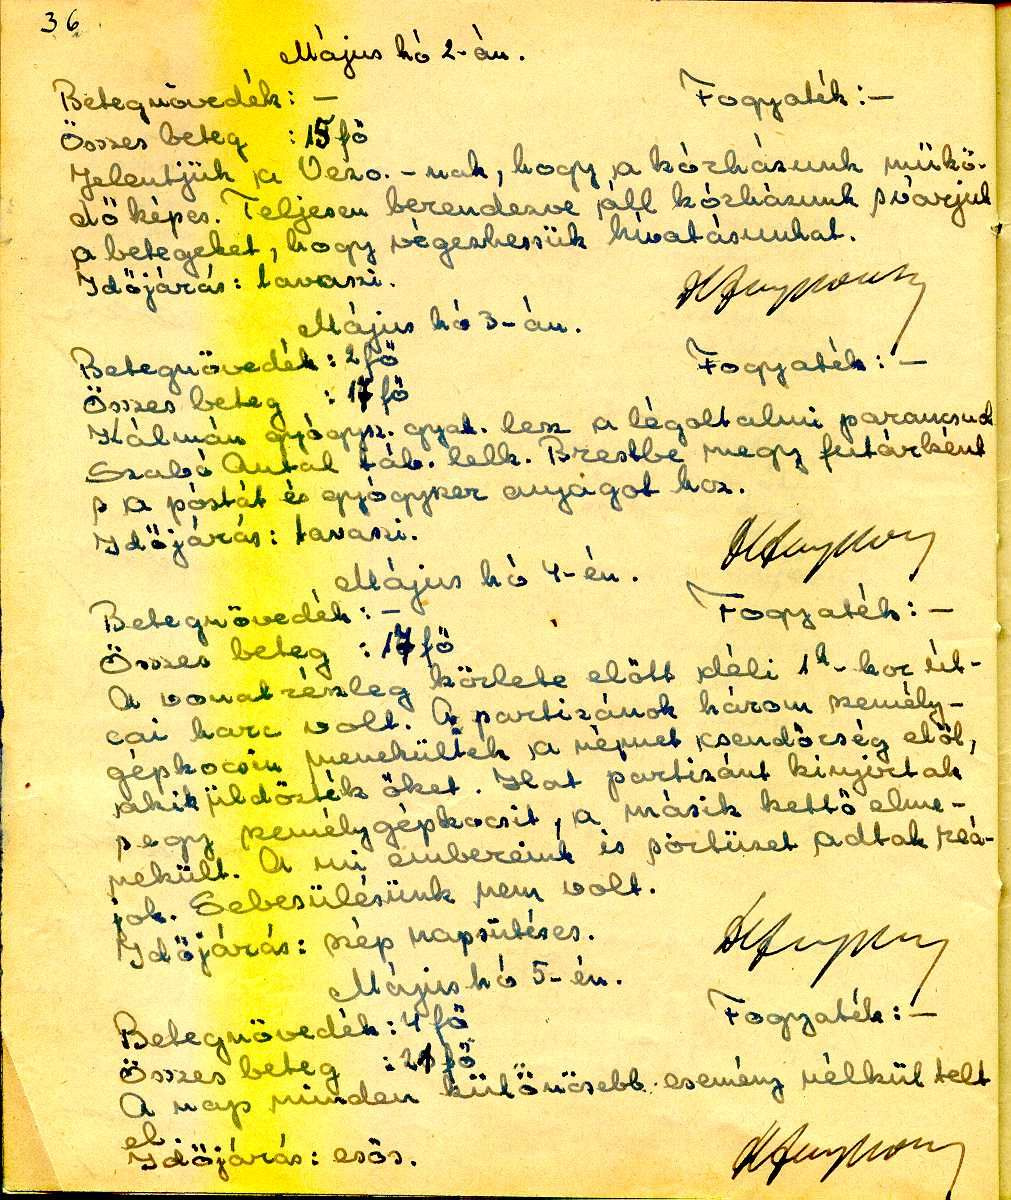 36
Május hó 2-án.
Betegnövedék: — Fogyaték: —
Összes beteg : 15 fő
Jelentjük a Vezo.-nak, hogy a kórházunk műkö-
dőképes. Teljesen berendezve áll kórházunk s várjuk
a betegeket, hogy végezhessük hivatásunkat.
Időjárás: tavaszi.
Május hó 3-án.
Betegnövedék: 2 fő Fogyaték: —
Összes beteg : 17 fő
Kálmán gyógysz. gyak. lesz a légoltalmi parancsnok
Szabó Antal táb. lelk. Brestbe megy futárként
s a póstát és gyógyszer anyagot hoz.
Időjárás: tavaszi.
Május hó 4-én.
Betegnövedék: — Fogyaték: —
Összes beteg : 17 fő
A vonatrészleg körlete előtt déli 1h-kor út-
cai harc volt. A partizánok három személy-
gépkocsin menekültek a német csendőrség elől,
akik üldözték őket. Hat partizánt kinyírtak
s egy személygépkocsit, a másik kettő elme-
nekült. A mi embereink is sörtüzet adtak reá-
jok. Sebesülésünk nem volt.
Időjárás: szép napsütéses.
Május hó 5-én.
Betegnövedék: 4 fő Fogyaték: —
Összes beteg : 21 fő
A nap minden különösebb esemény nélkül telt
el.
Időjárás: esős.